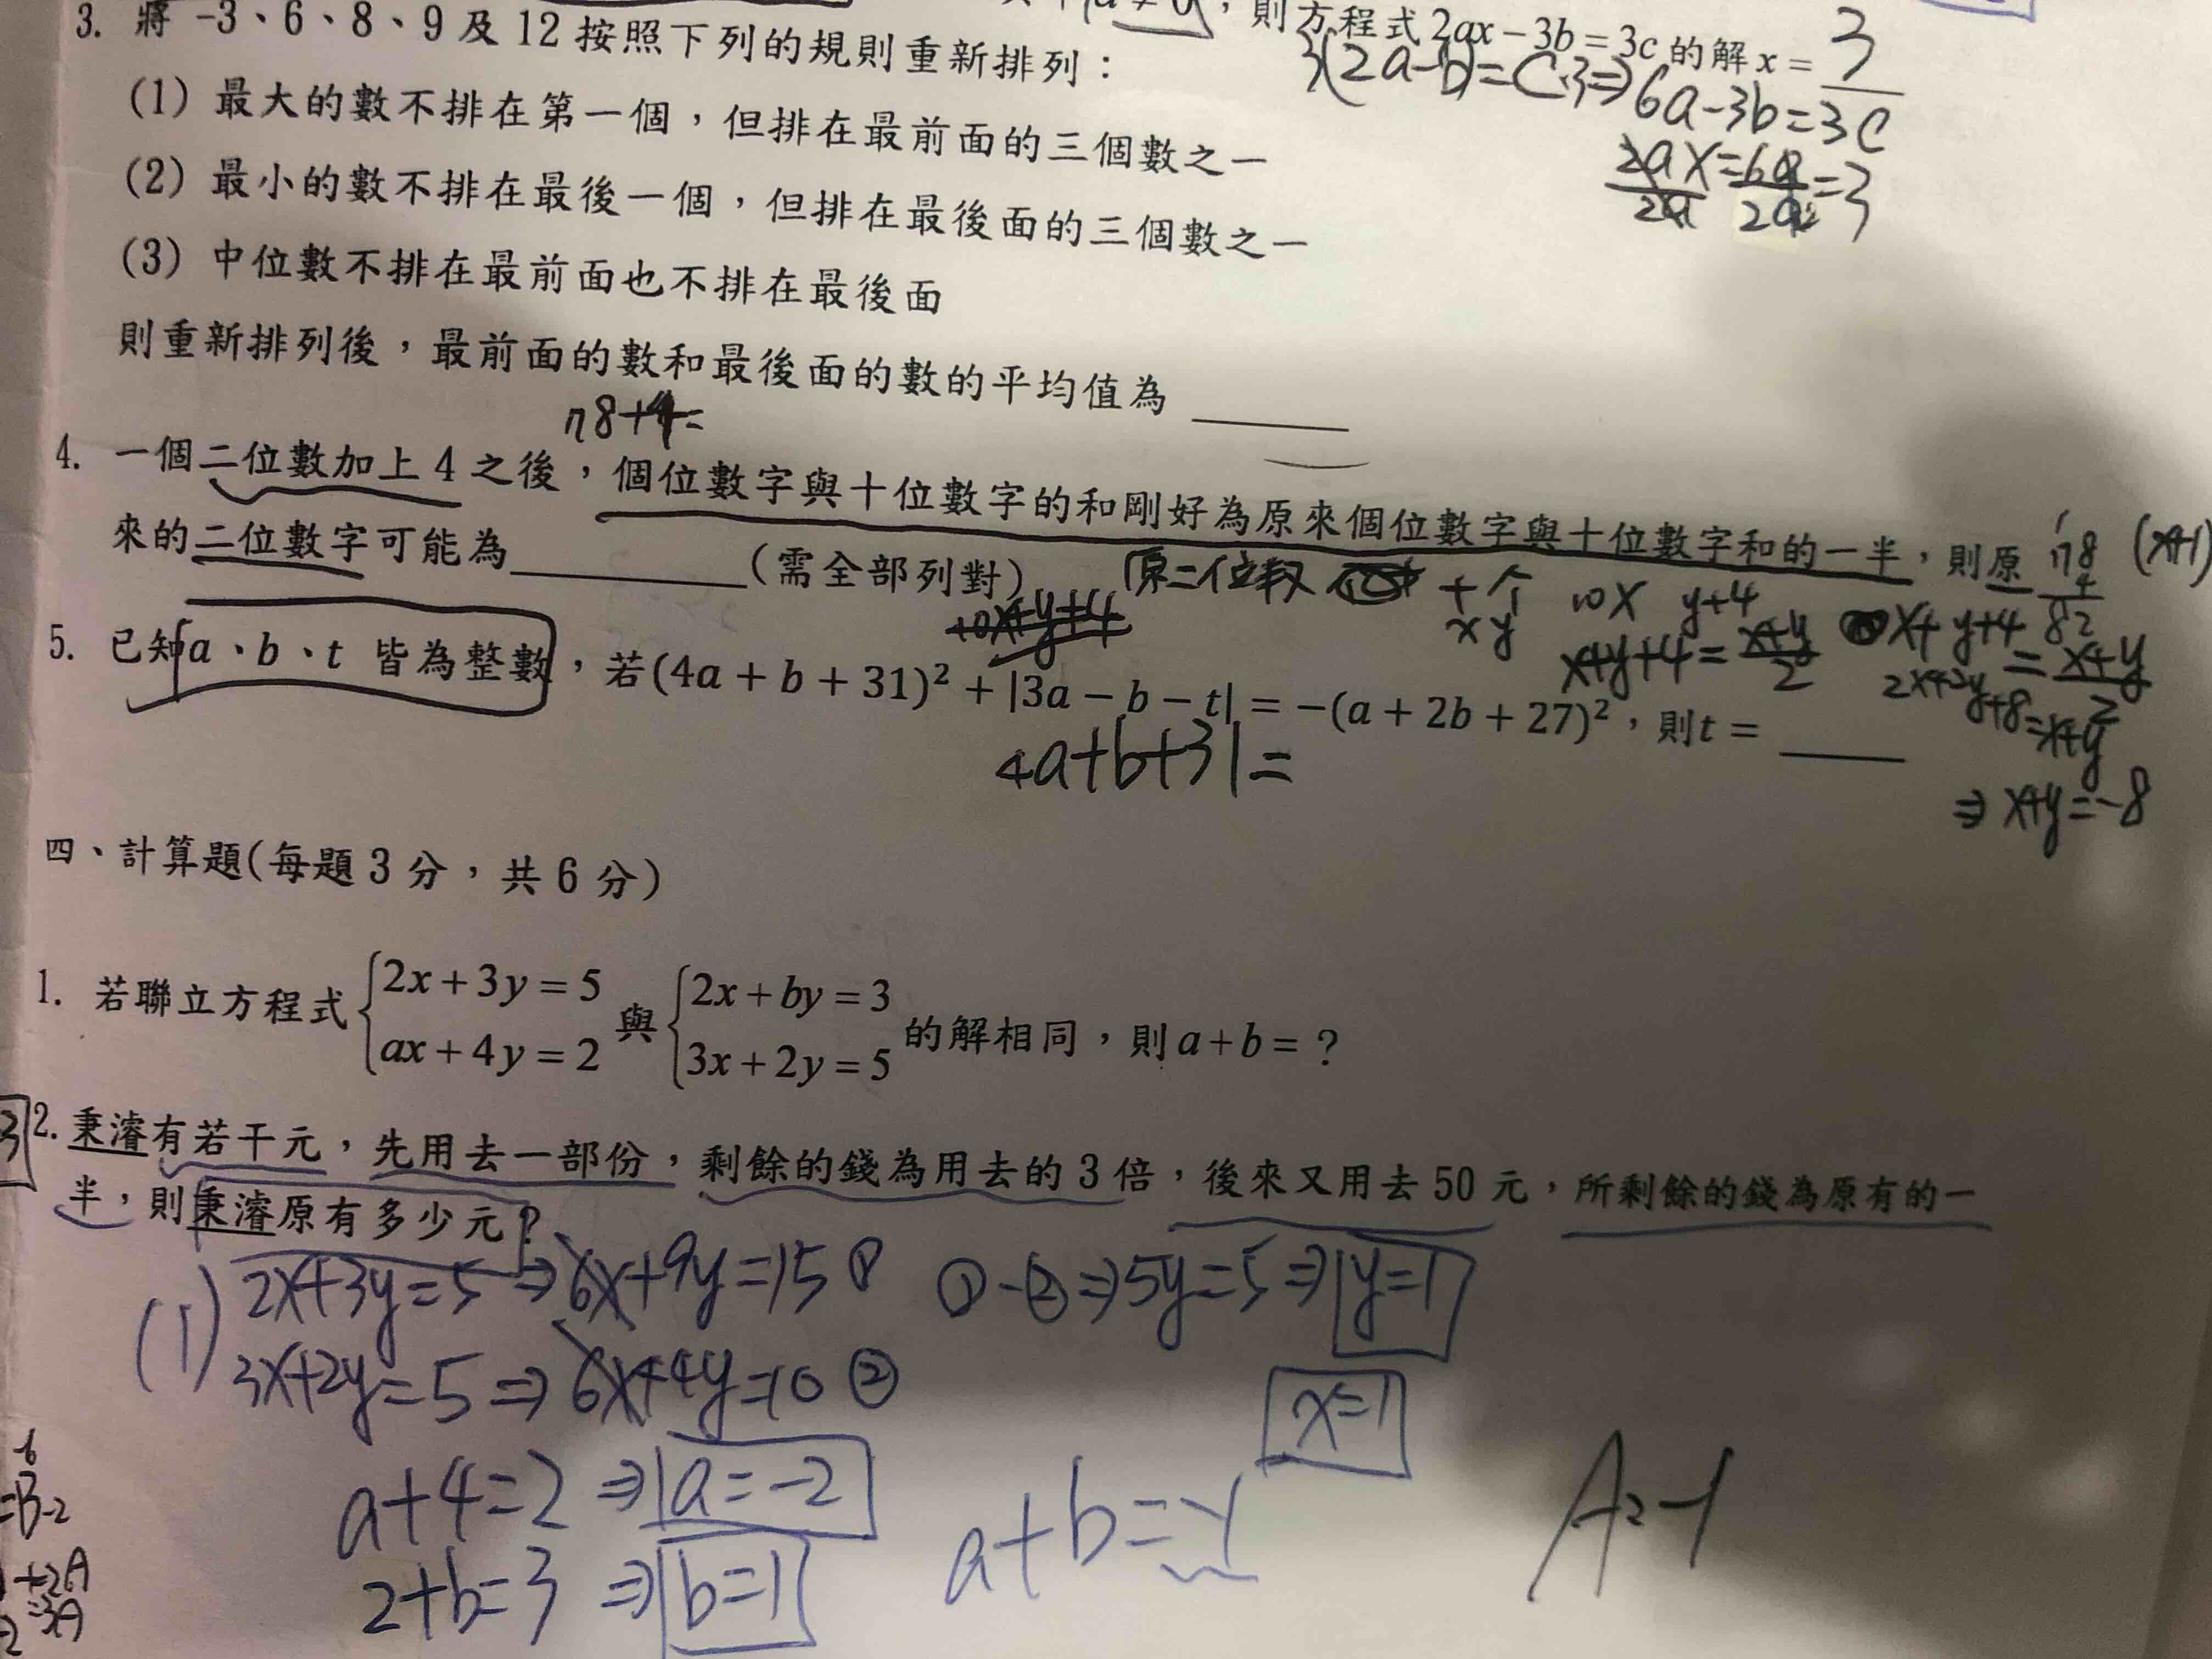 3. 將 -3、6、8、9 及 12 按照下列的規則重新排列：
(1) 最大的數不排在第一個，但排在最前面的三個數之一
(2) 最小的數不排在最後一個，但排在最後面的三個數之一
(3) 中位數不排在最前面也不排在最後面
則重新排列後，最前面的數和最後面的數的平均值為
，則方程式 2ax-3b=3c 的解 x = 3
3(2a-b)=C·3⇒6a-3b=3C
2ax/2a=6a/2a=3
78+4=
4. 一個二位數加上 4 之後，個位數字與十位數字的和剛好為原來個位數字與十位數字和的一半，則原
來的二位數字可能為________(需全部列對)
原二位數 十 个
x y
10x y+4
10x+y+4
x+y+4=(x+y)/2
78
4
82
(x+1)
x+y+4=(x+y)/2
2x+2y+8=x+y
⇒x+y=-8
5. 已知a、b、t 皆為整數，若(4a+b+31)²+|3a-b-t|=-(a+2b+27)²，則t=
4a+b+31=
四、計算題(每題 3 分，共 6 分)
1. 若聯立方程式{2x+3y=5 ax+4y=2 與{2x+by=3 3x+2y=5 的解相同，則a+b=？
2. 秉濬有若干元，先用去一部份，剩餘的錢為用去的 3 倍，後來又用去 50 元，所剩餘的錢為原有的一
半，則秉濬原有多少元？
(1) 2x+3y=5⇒6x+9y=15① ①-②⇒5y=5⇒y=1
3x+2y=5⇒6x+4y=10② x=1
a+4=2⇒a=-2
2+b=3⇒b=1
a+b=-1
A=-1
3
=B-2
+2A
=3A